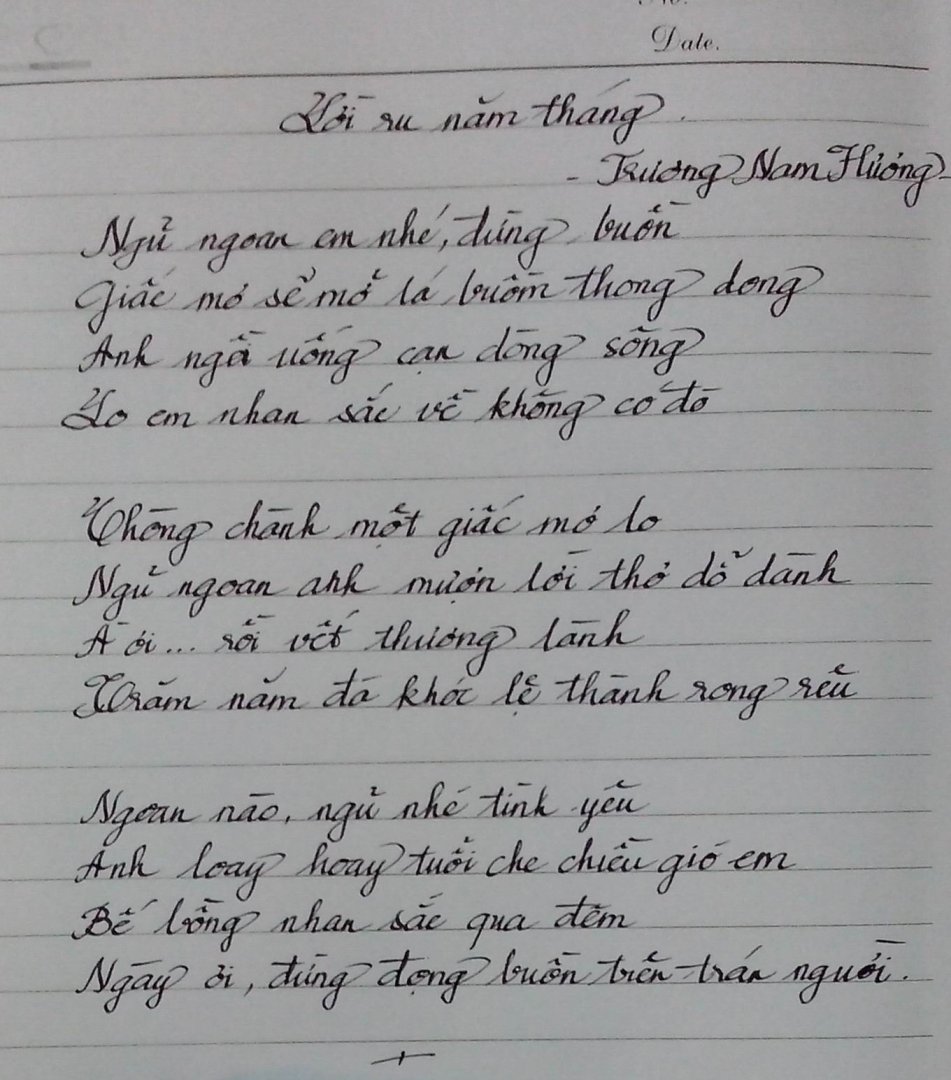 Date.
Lời ru năm tháng.
- Trương Nam Hương -
Ngủ ngoan em nhé, đừng buồn
Giấc mơ sẽ mở lá buồm thong dong
Anh ngồi uống cạn dòng sông
Lo em nhan sắc về không có đò
Chòng chành một giấc mơ lo
Ngủ ngoan anh mượn lời thơ dỗ dành
À ơi... rồi vết thương lành
Trăm năm đá khóc lệ thành rong rêu
Ngoan nào, ngủ nhé tình yêu
Anh loay hoay tuổi che chiều gió em
Bế bồng nhan sắc qua đêm
Ngày ơi, đừng đọng buồn trên trán người.